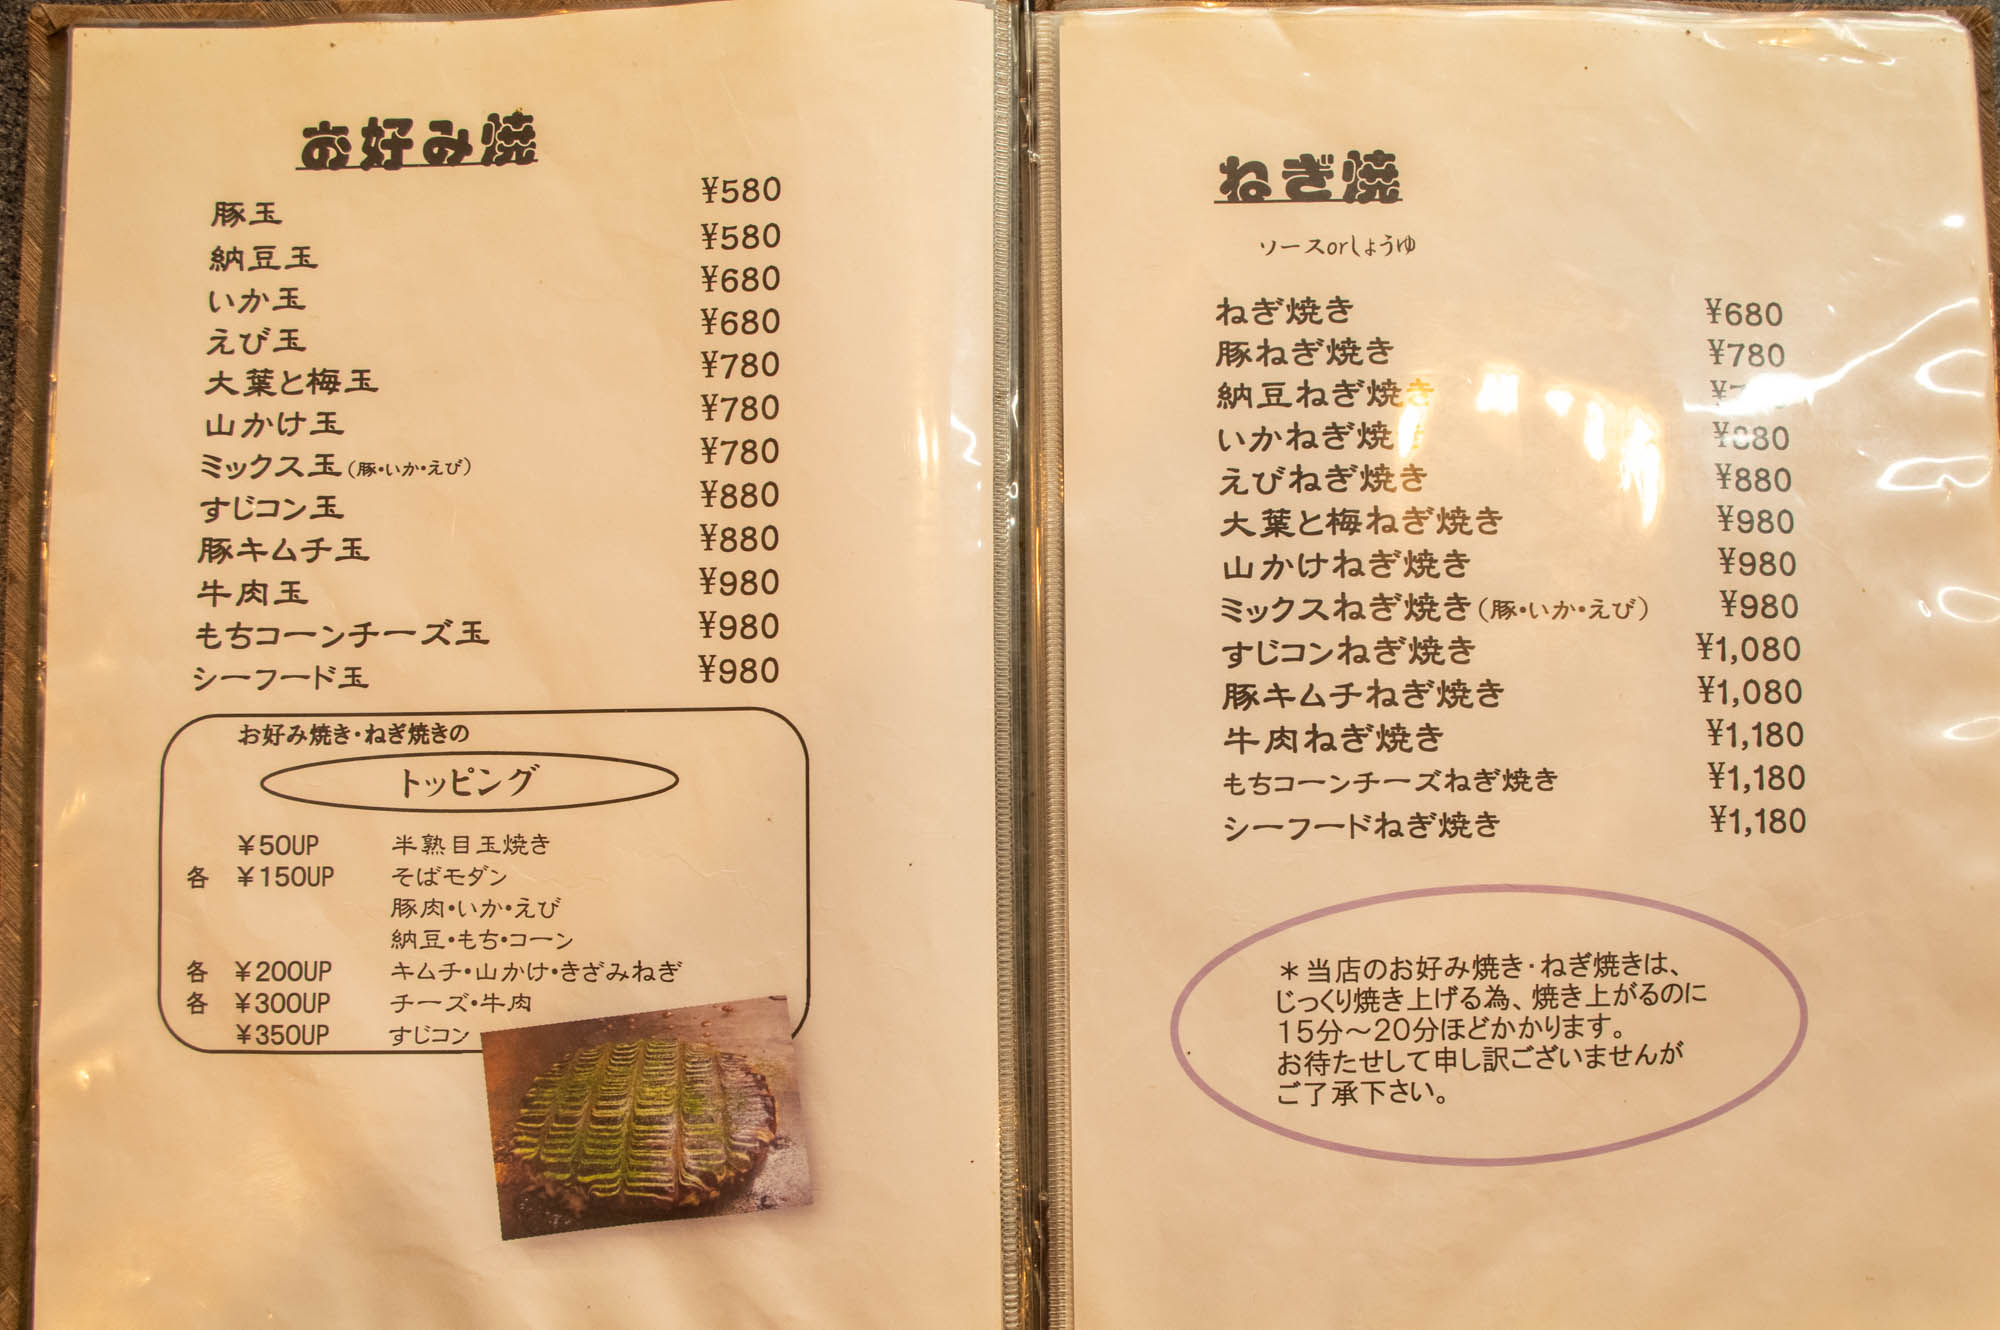 お好み焼
豚玉 ¥580
納豆玉 ¥580
いか玉 ¥680
えび玉 ¥680
大葉と梅玉 ¥780
山かけ玉 ¥780
ミックス玉(豚・いか・えび) ¥780
すじコン玉 ¥880
豚キムチ玉 ¥880
牛肉玉 ¥980
もちコーンチーズ玉 ¥980
シーフード玉 ¥980
お好み焼き・ねぎ焼きの
トッピング
¥50UP 半熟目玉焼き
各 ¥150UP そばモダン
豚肉・いか・えび
納豆・もち・コーン
各 ¥200UP キムチ・山かけ・きざみねぎ
各 ¥300UP チーズ・牛肉
¥350UP すじコン
ねぎ焼
ソースorしょうゆ
ねぎ焼き ¥680
豚ねぎ焼き ¥780
納豆ねぎ焼き
いかねぎ焼き ¥880
えびねぎ焼き ¥880
大葉と梅ねぎ焼き ¥980
山かけねぎ焼き ¥980
ミックスねぎ焼き(豚・いか・えび) ¥980
すじコンねぎ焼き ¥1,080
豚キムチねぎ焼き ¥1,080
牛肉ねぎ焼き ¥1,180
もちコーンチーズねぎ焼き ¥1,180
シーフードねぎ焼き ¥1,180
＊当店のお好み焼き・ねぎ焼きは、
じっくり焼き上げる為、焼き上がるのに
15分～20分ほどかかります。
お待たせして申し訳ございませんが
ご了承下さい。